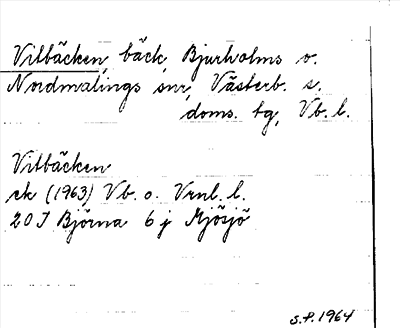 Vitbäcken, bäck, Bjurholms o.
Nordmalings snr, Västerb. s.
doms. tg, Vb. l.
Vitbäcken
ek (1963) Vb. o. Vrnl. l.
20 J Björna 6 j Mjösjö
S.P. 1964